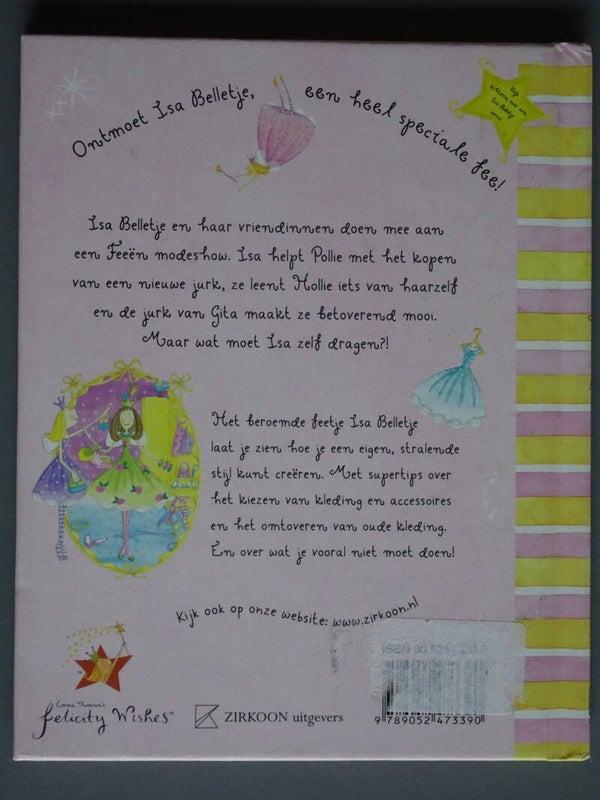 Ontmoet Isa Belletje, een heel speciale fee!
Isa Belletje en haar vriendinnen doen mee aan
een Feeën modeshow. Isa helpt Pollie met het kopen
van een nieuwe jurk, ze leent Hollie iets van haarzelf
en de jurk van Gita maakt ze betoverend mooi.
Maar wat moet Isa zelf dragen?!
Het beroemde feetje Isa Belletje
laat je zien hoe je een eigen, stralende
stijl kunt creëren. Met supertips over
het kiezen van kleding en accessoires
en het omtoveren van oude kleding.
En over wat je vooral niet moet doen!
Kijk ook op onze website: www.zirkoon.nl
Emma Thomson's
felicity Wishes™
ZIRKOON uitgevers
ISBN 90
9 789052 473390